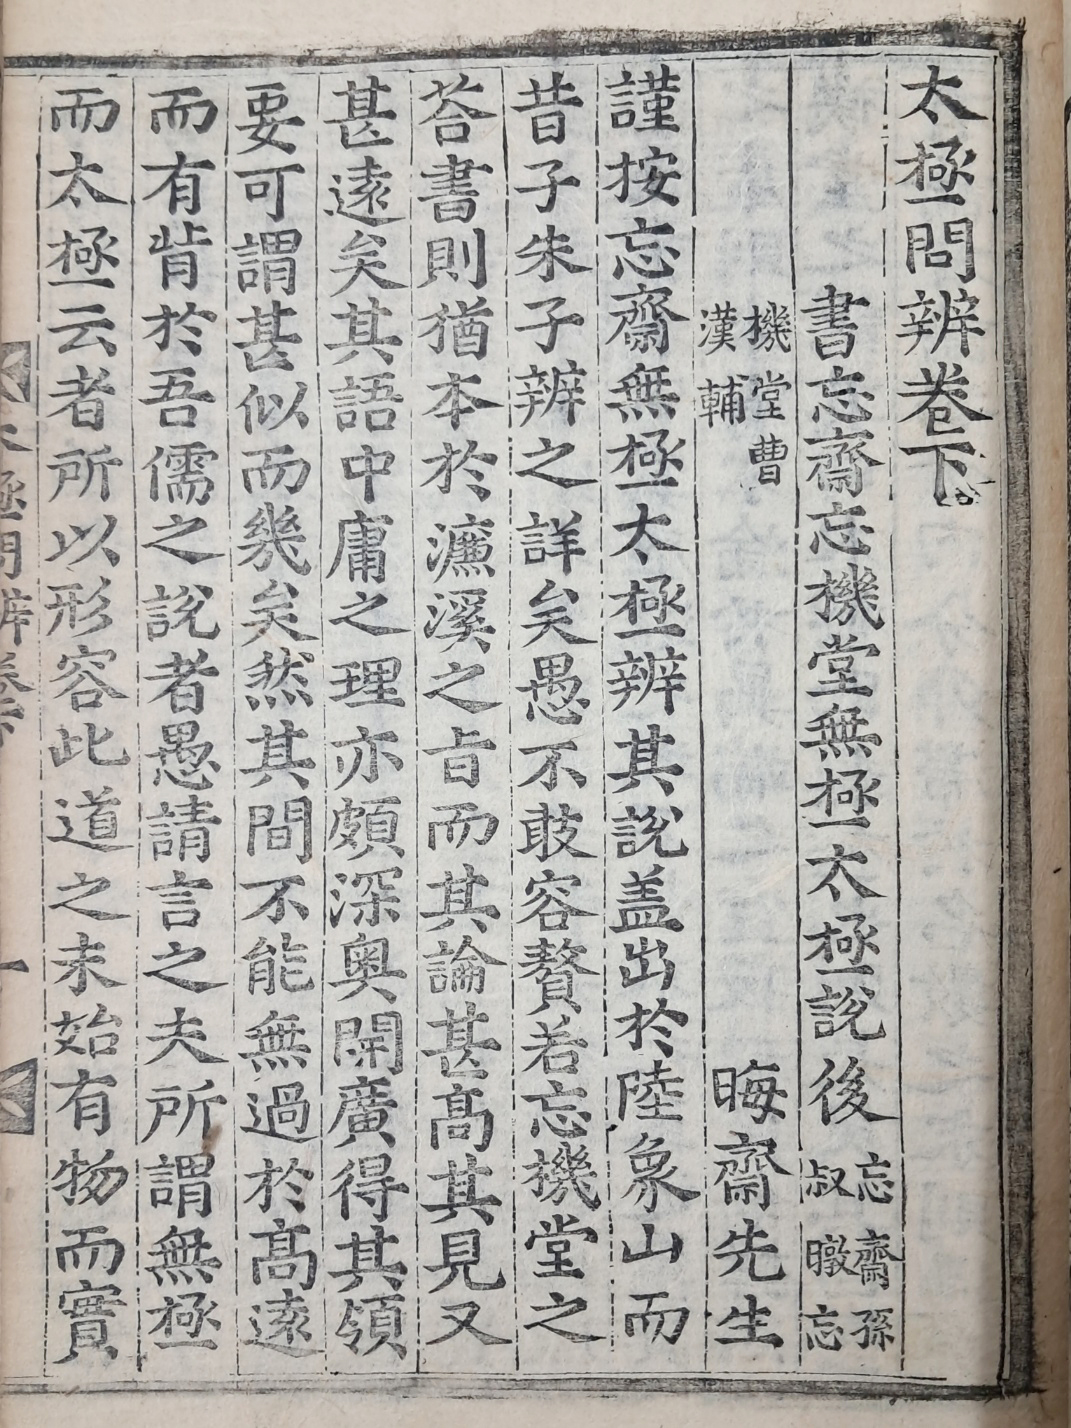 太極問辨卷下
書忘齋忘機堂無極太極說後忘齋孫叔暾忘
機堂曹漢輔
晦齋先生
謹按忘齋無極太極辨其說盖出於陸象山而
昔子朱子辨之詳矣愚不敢容贅若忘機堂之
荅書則猶本於濂溪之旨而其論甚高其見又
甚遠矣其語中庸之理亦頗深奧開廣得其領
要可謂甚似而幾矣然其間不能無過於高遠
而有背於吾儒之說者愚請言之夫所謂無極
而太極云者所以形容此道之未始有物而實
太極問辨卷下
一